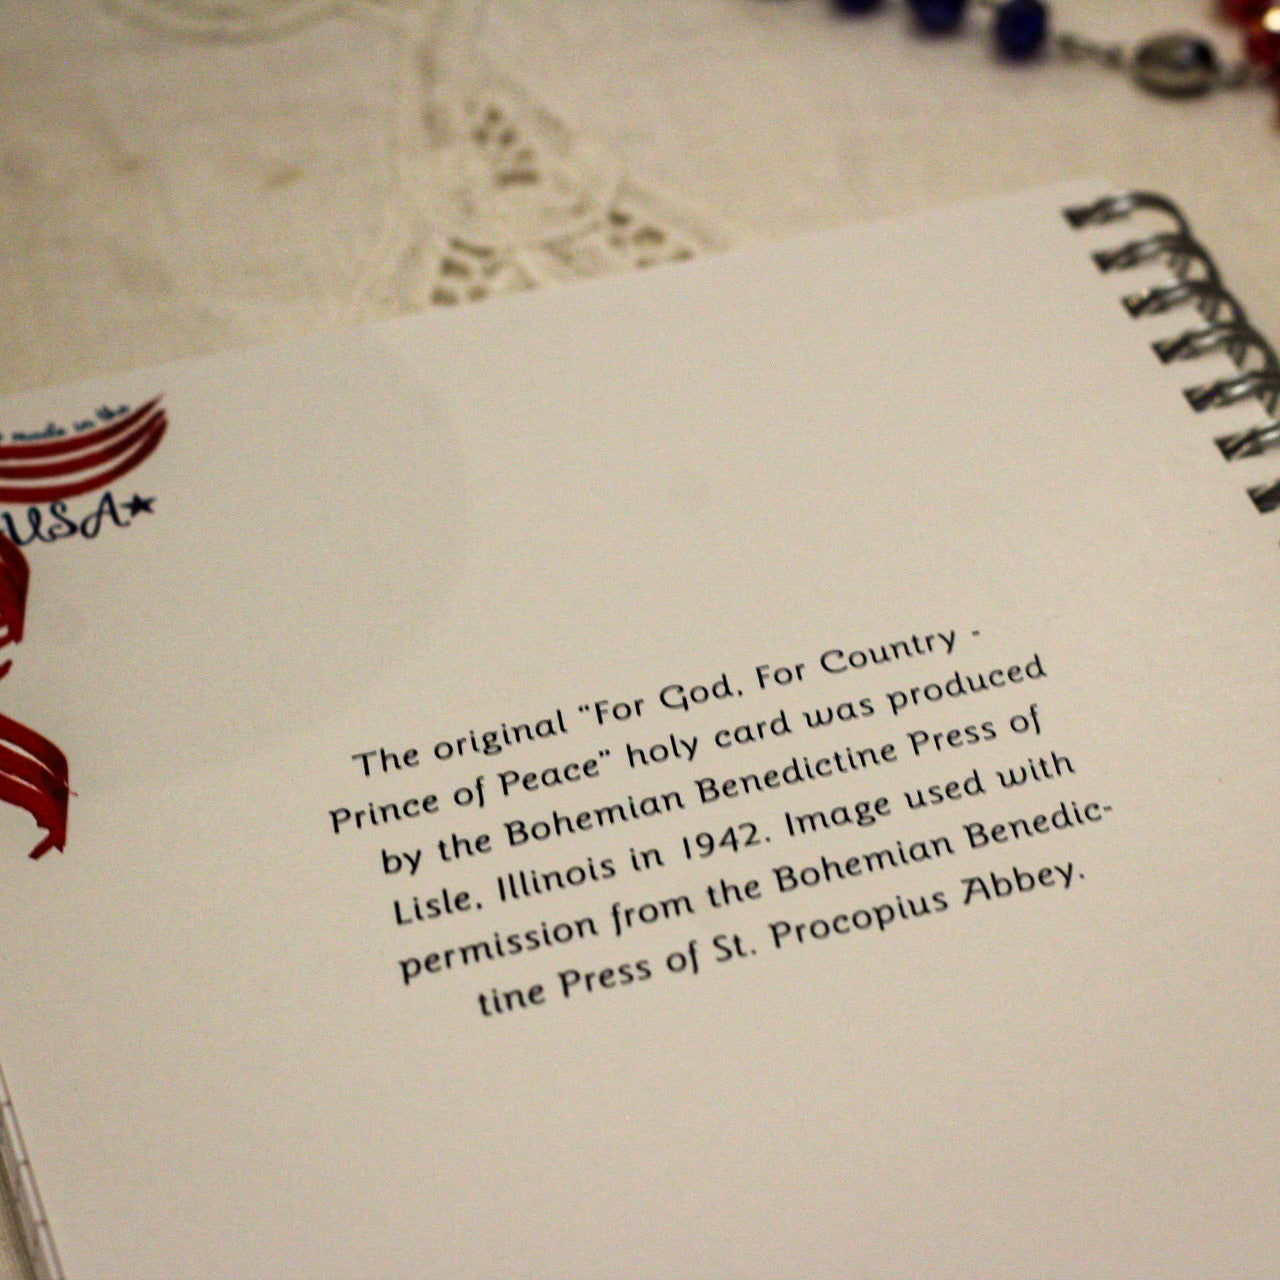 made in the
USA
The original “For God, For Country -
Prince of Peace” holy card was produced
by the Bohemian Benedictine Press of
Lisle, Illinois in 1942. Image used with
permission from the Bohemian Benedic-
tine Press of St. Procopius Abbey.